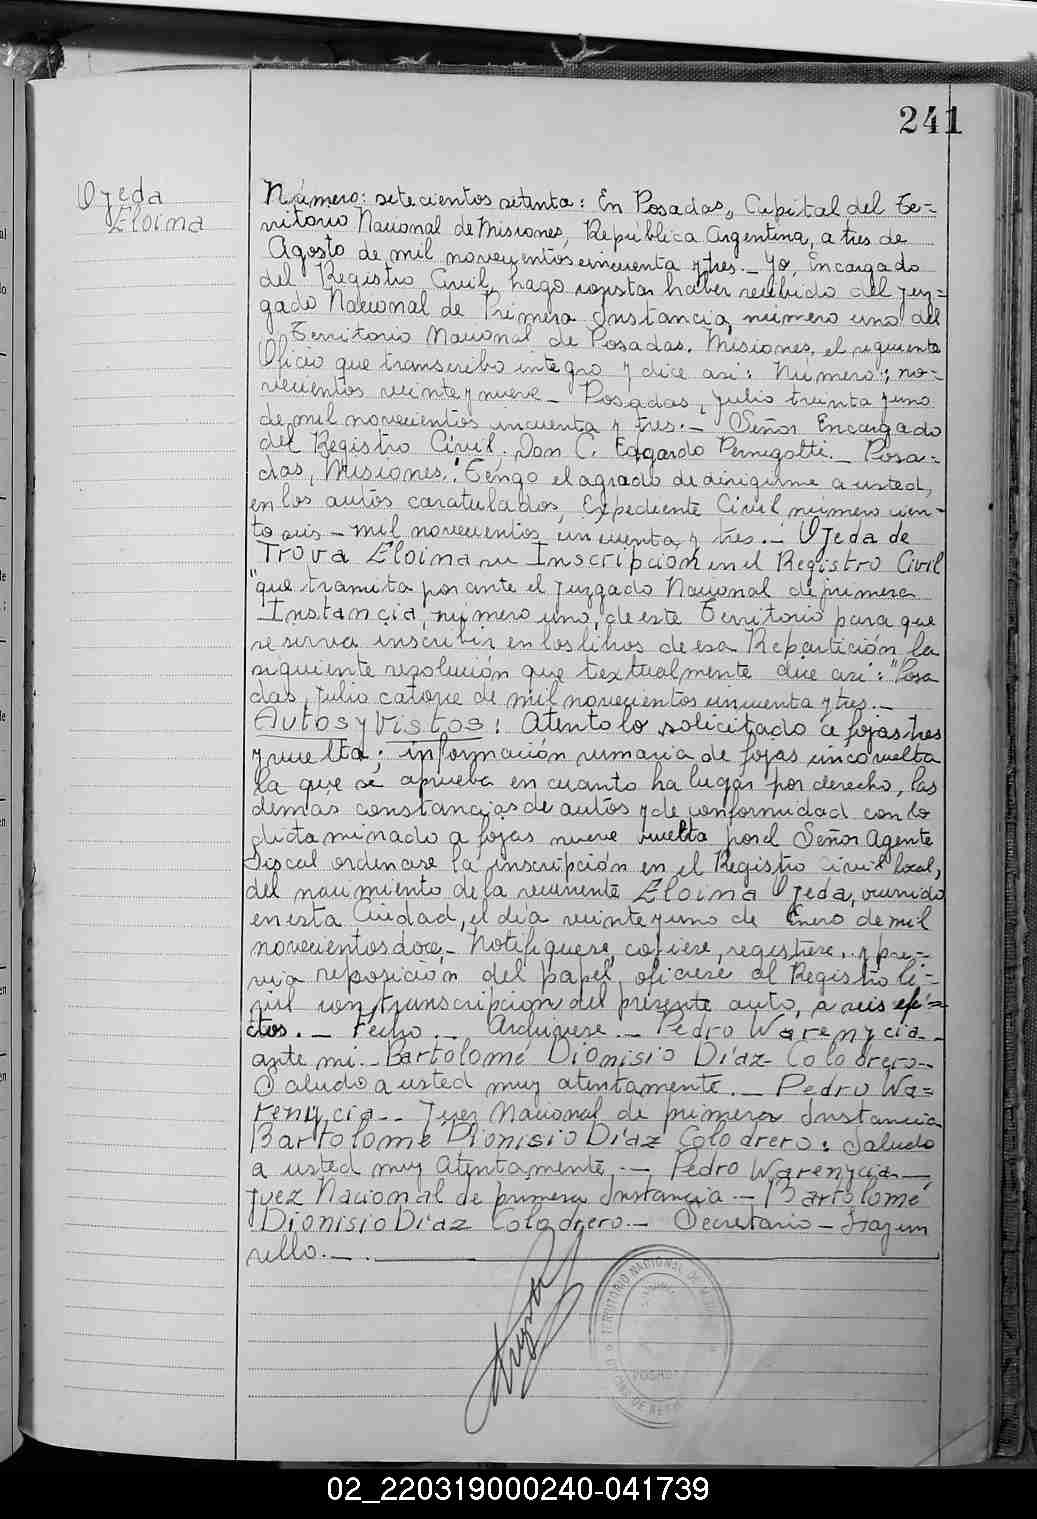 241
Ojeda
Eloina
Número: setecientos setenta: En Posadas, Capital del Te-
rritorio Nacional de Misiones, República Argentina, a tres de
Agosto de mil novecientos cincuenta y tres._ Yo, Encargado
del Registro Civil, hago constar haber recibido del Juz-
gado Nacional de Primera Instancia, número uno del
Territorio Nacional de Posadas, Misiones, el siguiente
Oficio que transcribo integro y dice asi: Numero:, no-
vecientos veinte y nueve_ Posadas, Julio treinta y uno
de mil novecientos cincuenta y tres._ Señor Encargado
del Registro Civil. Don C. Edgardo Pernigotti._ Posa-
das, Misiones. Tengo el agrado de dirigirme a usted,
en los autos caratulados, Expediente Civil número cien-
to seis_ mil novecientos cincuenta y tres._ Ojeda de
Trova Eloina su Inscripción en el Registro Civil
"que tramita por ante el Juzgado Nacional de primera
Instancia, número uno, de este Territorio para que
se sirva inscribir en los libros de esa Repartición la
siguiente resolución que textualmente dice asi: "Posa
das, Julio catorce de mil novecientos cincuenta y tres._
Autos y Vistos: Atento lo solicitado a fojas tres
y vuelta; información sumaria de fojas cinco vuelta
la que se aprueba en cuanto ha lugar por derecho, las
demas constancias de autos y de conformidad con lo
dictaminado a fojas nueve vuelta por el Señor Agente
Fiscal ordenase la inscripción en el Registro Civil local,
del nacimiento de la recurrente Eloina Ojeda, ocurrido
en esta Ciudad, el dia veinte y uno de Enero de mil
novecientos doce,_ Notifiquese, copiese, registrese, y pre-
via reposición del papel, oficiese al Registro Ci-
vil con transcripción del presente auto, a seis efe-
ctos._ Fecho._ Archivese._ Pedro Warenycia_
ante mi._ Bartolomé Dionisio Díaz Colodrero._
Saludo a usted muy atentamente._ Pedro Wa-
renycia._ Juez Nacional de primera Instancia
Bartolomé Dionisio Díaz Colodrero: Saludo
a usted muy Atentamente._ Pedro Warenycia_
Juez Nacional de primera Instancia._ Bartolomé
Dionisio Díaz Colodrero._ Secretario_ Hay un
sello._.
TERRITORIO NACIONAL DE
POSADAS
02_220319000240-041739